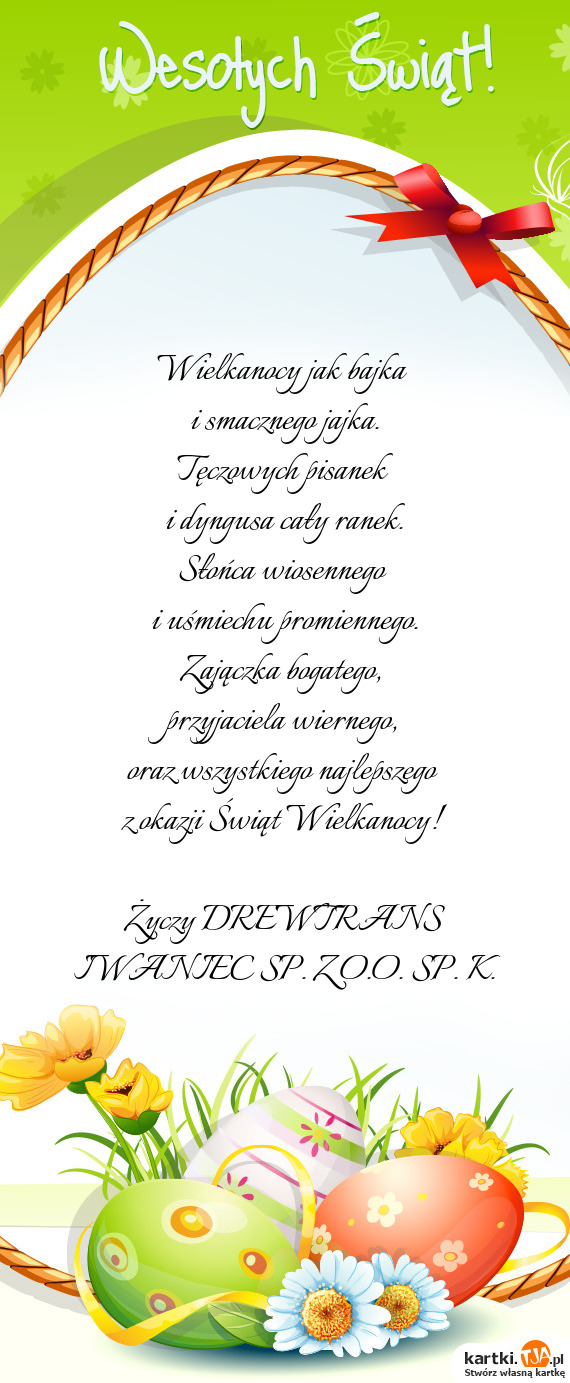 Wesołych Świąt!
Wielkanocy jak bajka
i smacznego jajka.
Tęczowych pisanek
i dyngusa cały ranek.
Słońca wiosennego
i uśmiechu promiennego.
Zajączka bogatego,
przyjaciela wiernego,
oraz wszystkiego najlepszego
z okazji Świąt Wielkanocy!
Życzy DREWTRANS
IWANIEC SP. Z O.O. SP. K.
kartki.TJA.pl
Stwórz własną kartkę